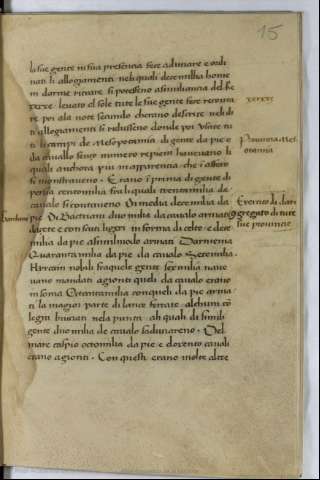 15
la sue gente in sua presencia fece adunare e ordi
nati li allogiamenti neli quali decemilia homi
ni dorme
a similiancia del Re
xerxe. leuato el sole tute le sue gente fece
re poi ala note secundo cherano descrite neli di
ti allogiamenti si redusseno donde poi
ti li campi de Mesopotemia di gente da pie e
da cauallo senza numero repieni haueuano li
quali anchora piu in apparentia che i assero
si monstraueno. Erano i prima di gente di
persia centomilia fra li quali trentamilia da
cauallo si conteneuo. Di media decemilia da
pie. Di Bactriani duo milia da cauallo armati
darete e con scuti ligieri in forma di celte. e dece
milia da pie a similmodo armati. Darmenia
Quarantamilia da pie da cauallo Setemilia.
Hircani nobili fra quele gente sexmilia haue
uano mandati agionti queli da cauallo erano
in soma Octantamilia con queli da pie arma
ti la magior parte di lance ferrate. alchuni cō
legni brusati nela punta. ali quali di simili
gente duo milia de cauallo saduna<wbr>reno. Del
mare caspio octomilia da pie e docento cauali
erano agionti. Con questi erano molte altre
xerxes
Prouincia Mes
otomia
Exercito di dari
o gregato di tute
sue prouincie